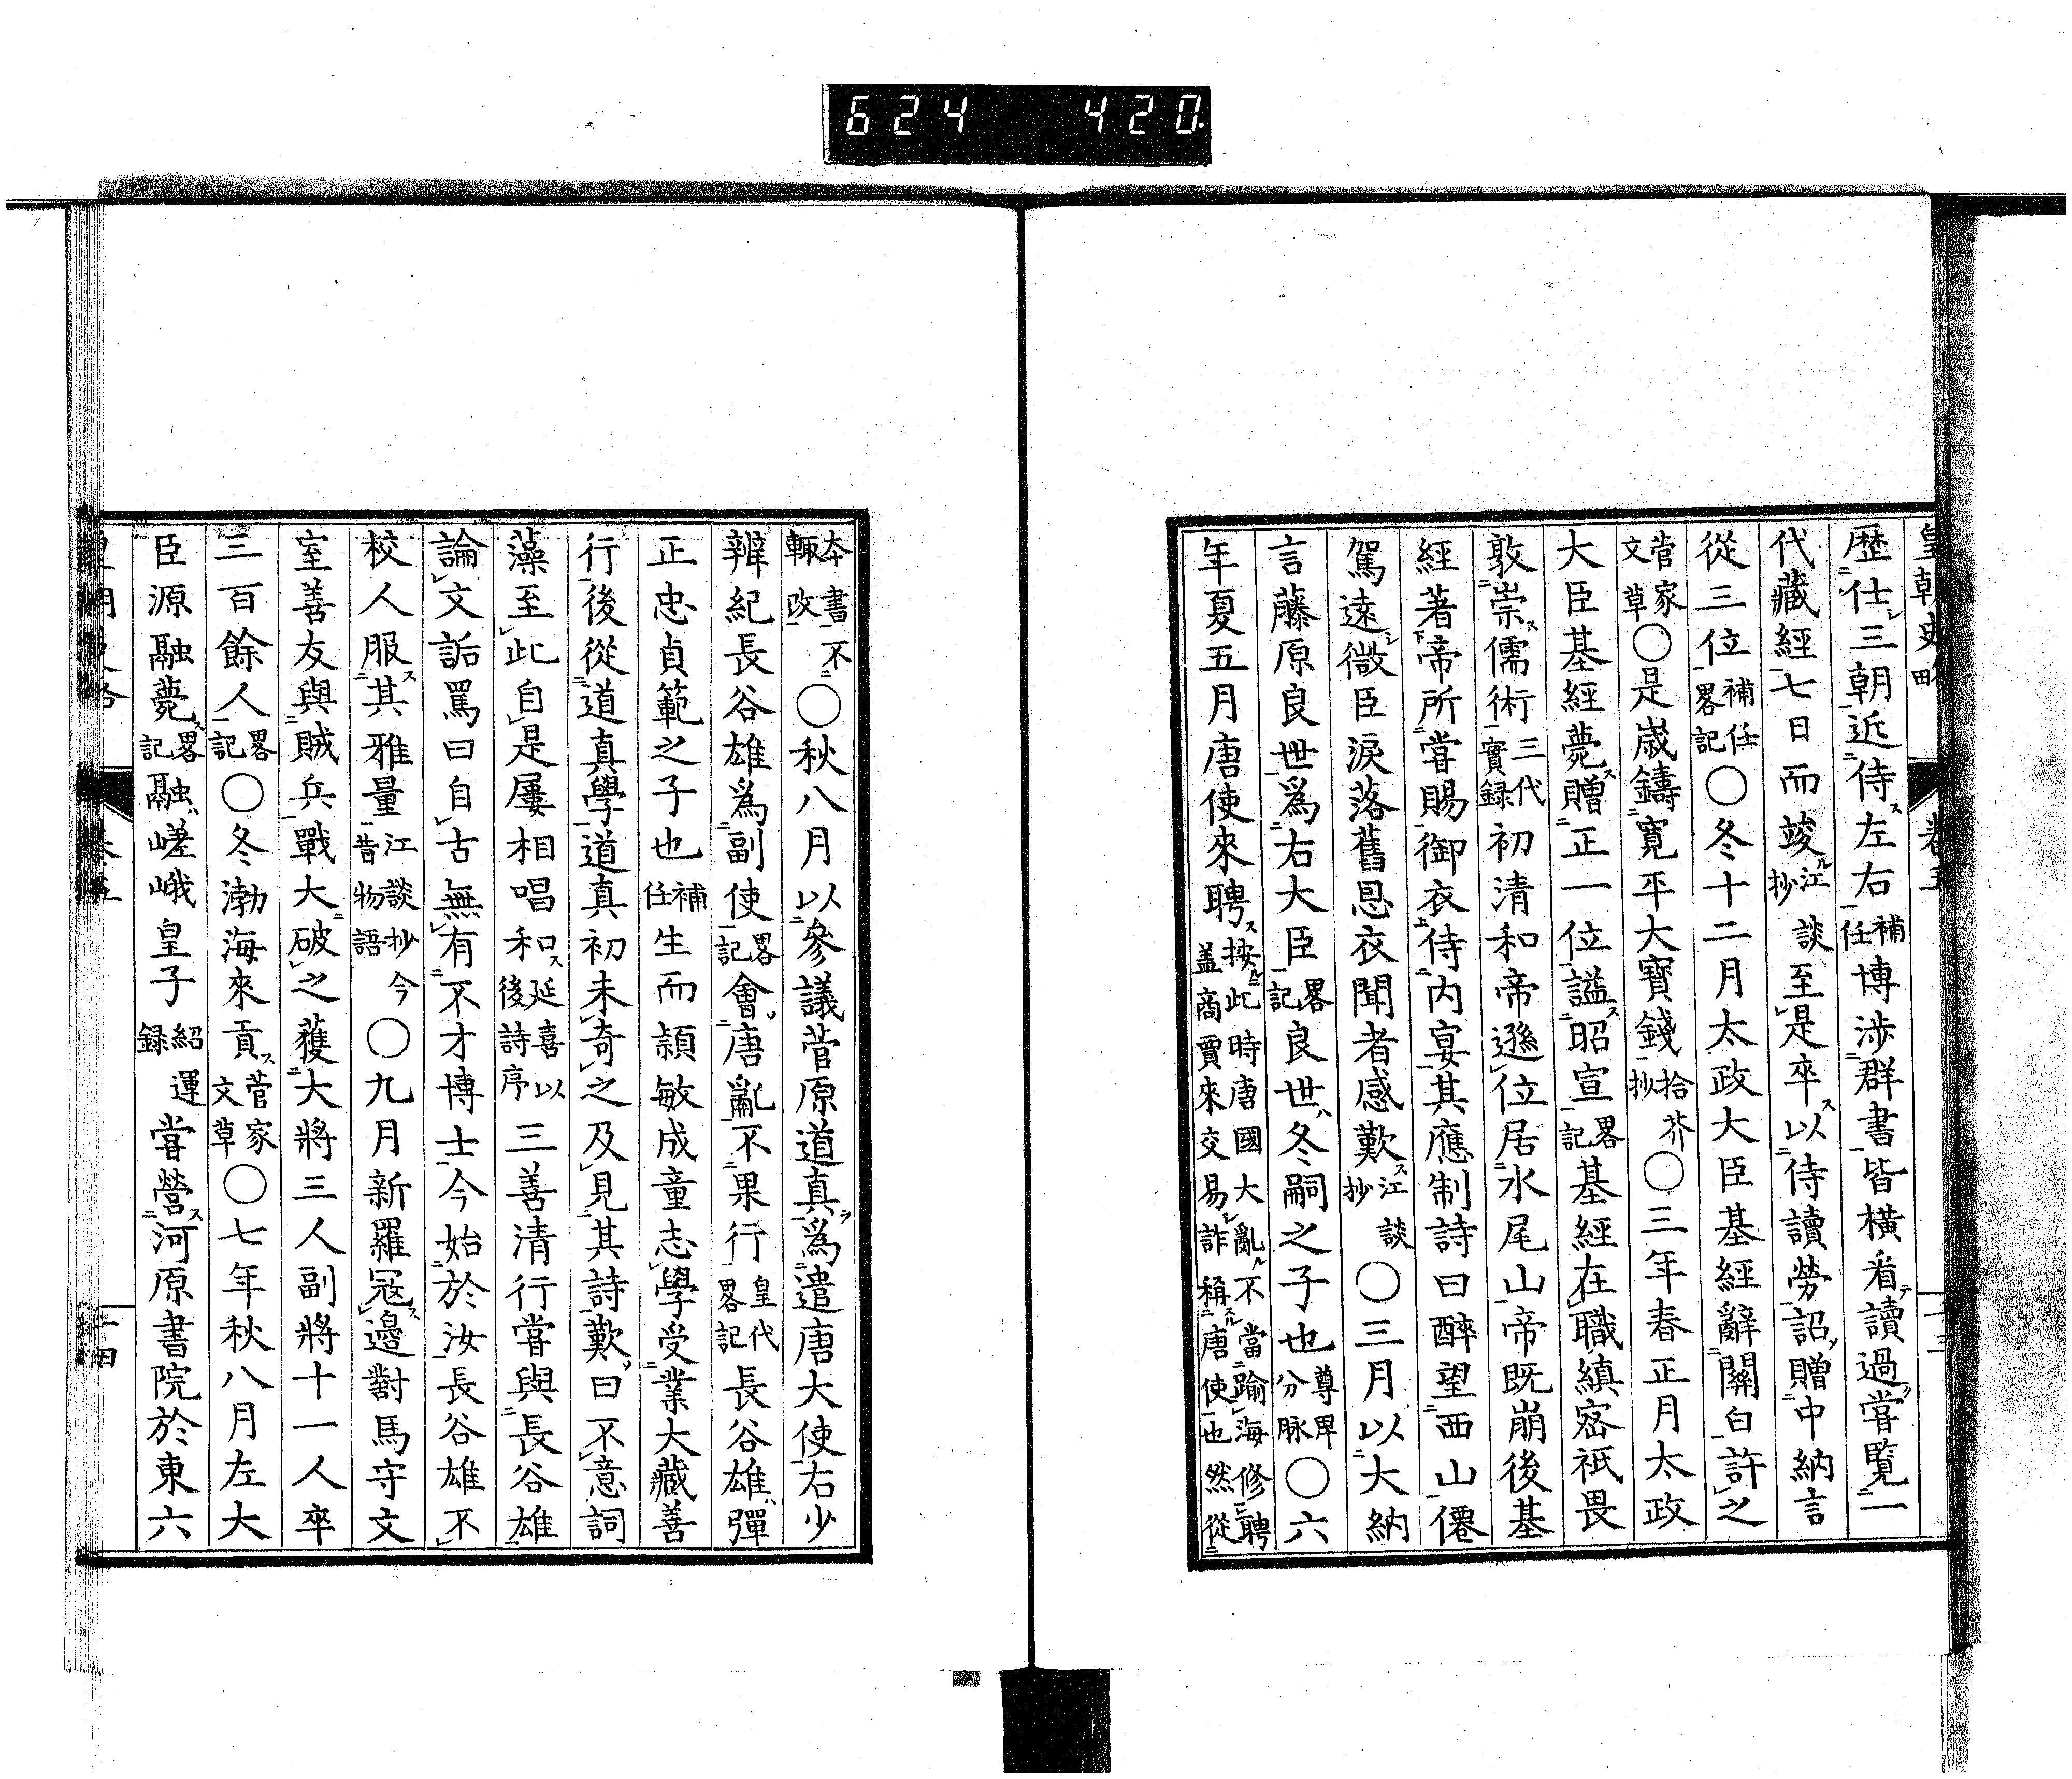 624 420
皇朝史畧 卷五 二十三
歴仕三朝近侍左右補任博渉群書皆横看讀過嘗覧一
代藏經七日而竣江談抄至是卒以侍讀勞詔贈中納言
從三位補任畧記〇冬十二月太政大臣基經辭關白許之
菅家文草〇是歳鑄寛平大寳錢拾芥抄〇三年春正月太政
大臣基經薨贈正一位諡昭宣畧記基經在職縝密祇畏
敦崇儒術三代實録初清和帝遜位居水尾山帝既崩後基
經著帝所嘗賜御衣侍内宴其應制詩曰醉望西山僊
駕遠微臣淚落舊恩衣聞者感歎江談抄〇三月以大納
言藤原良世爲右大臣畧記良世冬嗣之子也尊卑分脉〇六
年夏五月唐使來聘按此時唐國大亂不當踰海修聘盖商賈來交易詐稱唐使也然從
本書不輙改〇秋八月以參議菅原道真爲遣唐大使右少
辨紀長谷雄爲副使畧記會唐亂不果行皇代畧記長谷雄彈
正忠貞範之子也補任生而頴敏成童志學受業大藏善
行後從道真學道真初未奇之及見其詩歎曰不意詞
藻至此自是屢相唱和延喜以後詩序三善清行嘗與長谷雄
論文詬罵曰自古無有不才博士今始於汝長谷雄不
校人服其雅量江談抄今昔物語〇九月新羅冦邊對馬守文
室善友與賊兵戰大破之獲大將三人副將十一人卒
三百餘人畧記〇冬渤海來貢菅家文草〇七年秋八月左大
臣源融薨畧記融嵯峨皇子紹運録嘗營河原書院於東六